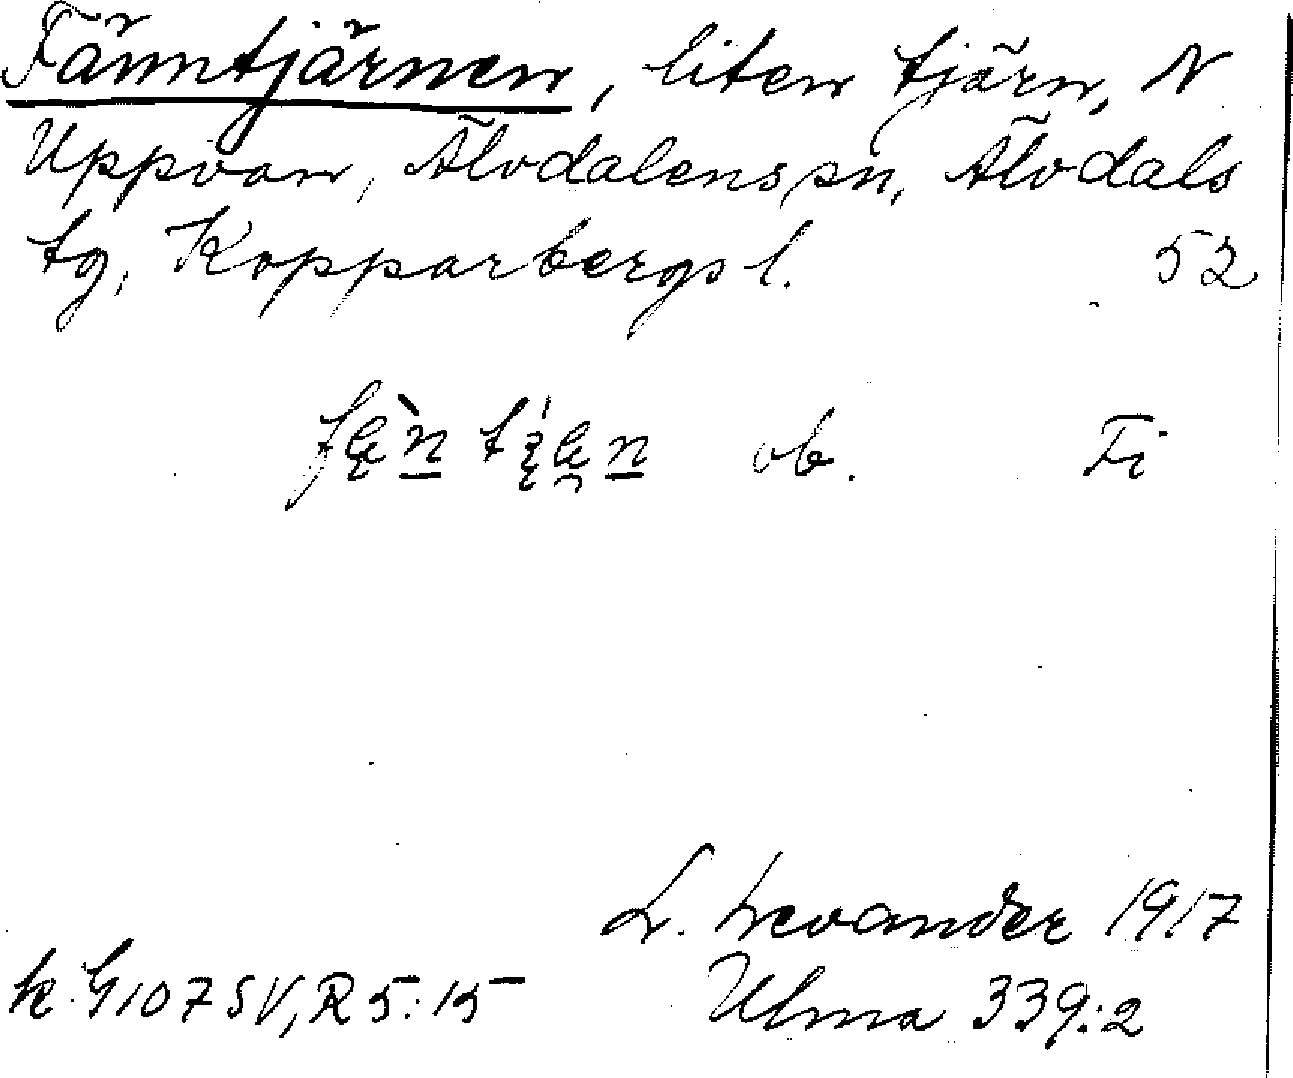 Fänntjärnen, liten tjärn, N
Uppvan, Älvdalens sn, Älvdals
tg, Kopparbergs l. 52
ob. Fi
L. Levander 1917
k. G107SV, R5:15 Ulma 339:2